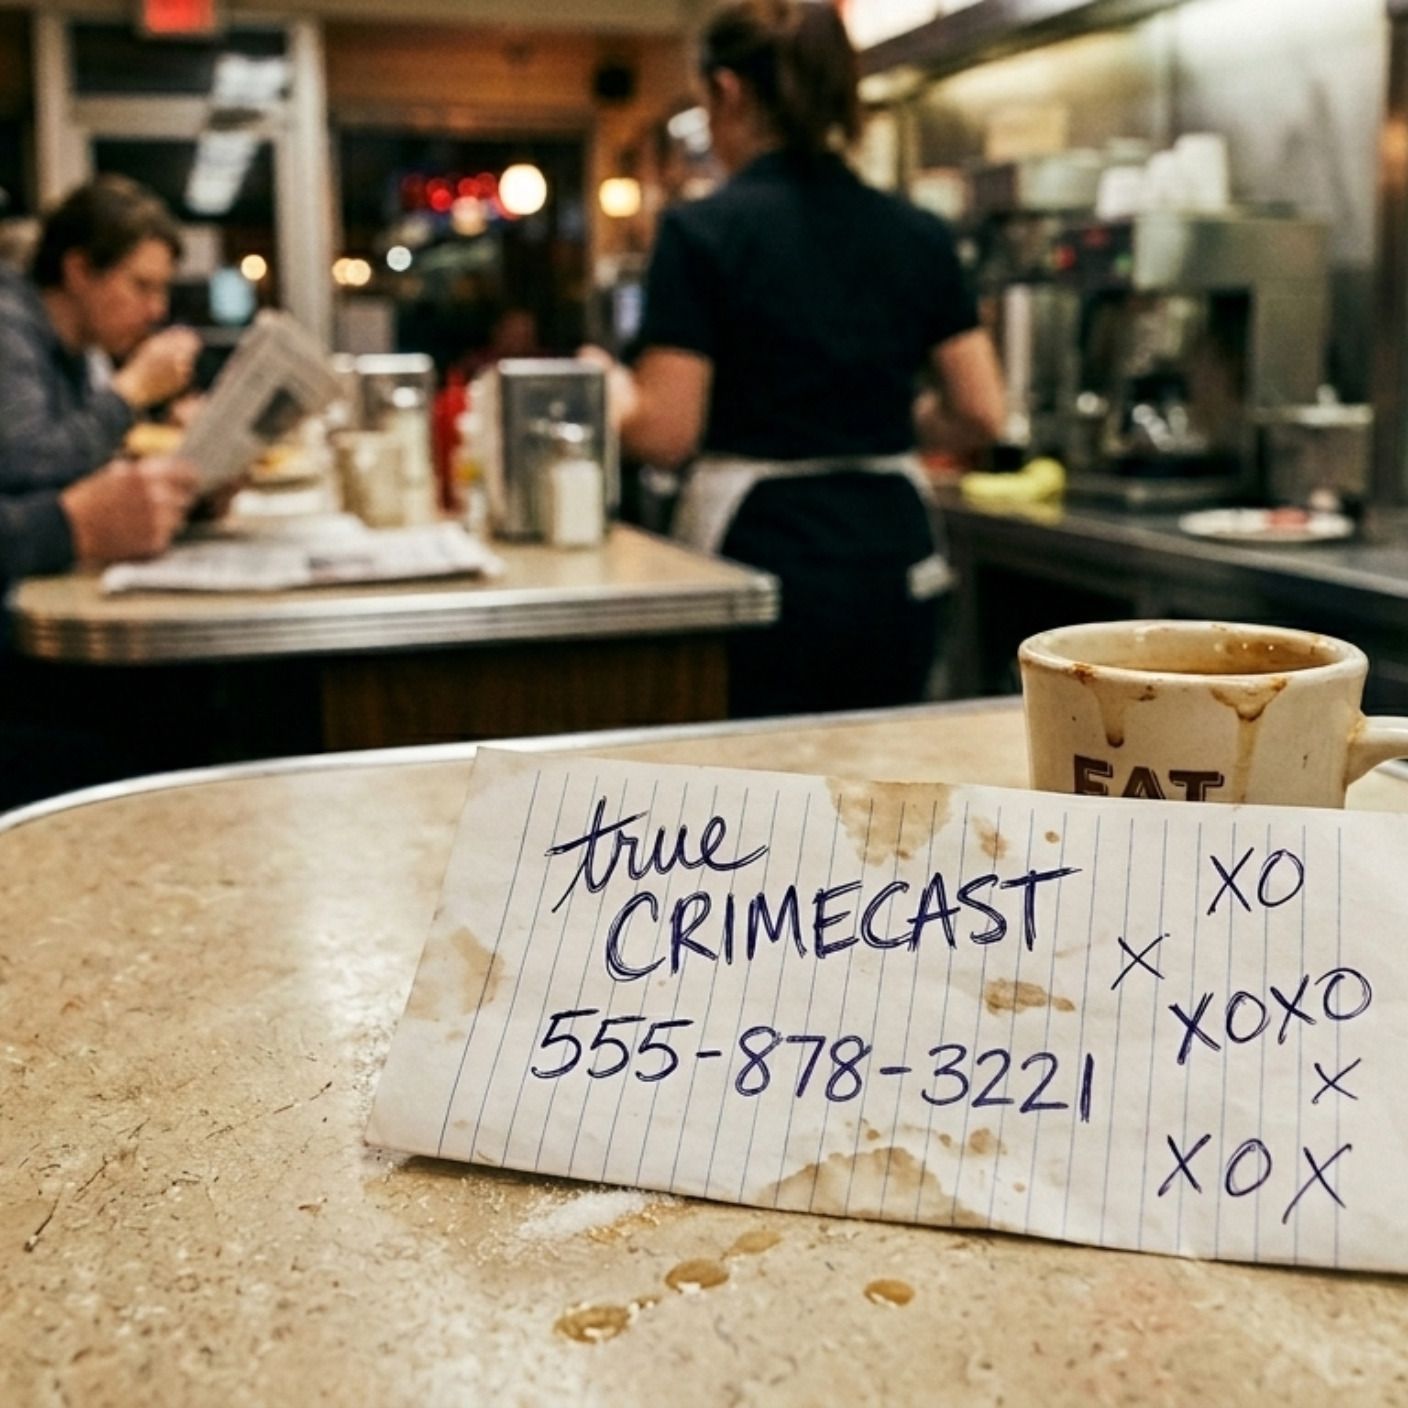 EAT
true
CRIMECAST
555-878-3221
XO
X
XOXO
X
XOX